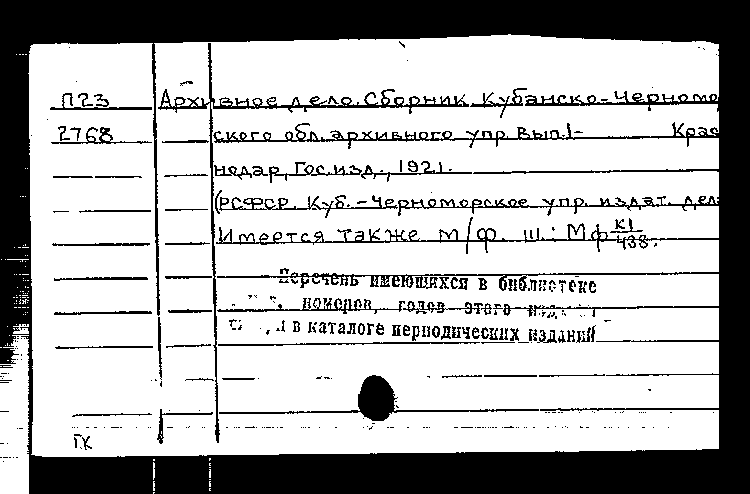 П23 Архивное дело. Сборник Кубанско-Черномо
2768 ского обл. архивного упр. Вып.1- Крас
нодар, Гос. изд., 1921.
(РСФСР. Куб.-Черноморское упр. издат. дел
Имеется также м/ф. ш.: Мф К1/438.
Перечень имеющихся в библиотеке
номеров, годов этого
в каталоге периодических изданий
ГК